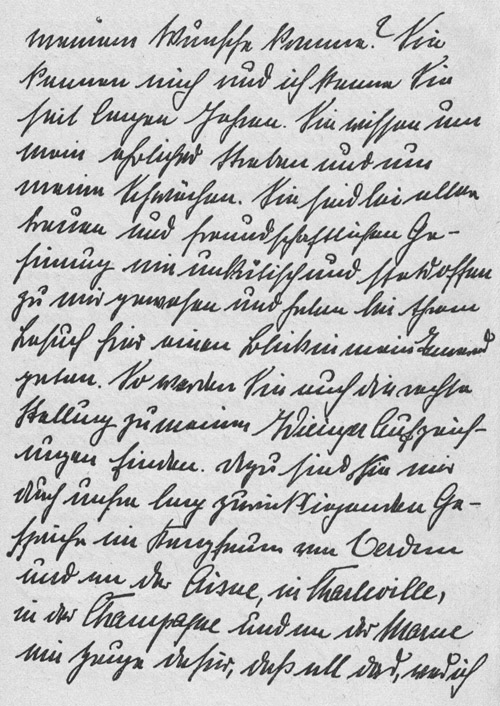 meinem Wunsche komme? Sie
kennen mich und ich kenne Sie
seit langen Jahren. Sie wissen um
mein ehrliches Streben und um
meine Schwächen. Sie sind bei aller
treuen und freundschaftlichen Ge-
sinnung nie unkritisch und stets offen
zu mir gewesen und haben bei Ihrem
Besuch hier einen Blick in mein
getan. So werden Sie auch die rechte
Stellung zu meinen Wiener Aufzeich-
nungen finden. Dazu sind Sie mir
durch unsre lang zurückliegenden Ge-
spräche im Kampfraum von Verdun
und an der Aisne, in Charleville,
in der Champagne und an der Marne
ein Zeuge dafür, daß all das, was ich